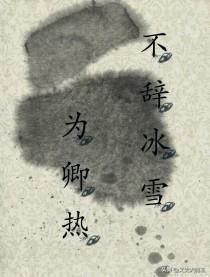 不辞冰雪
为卿热